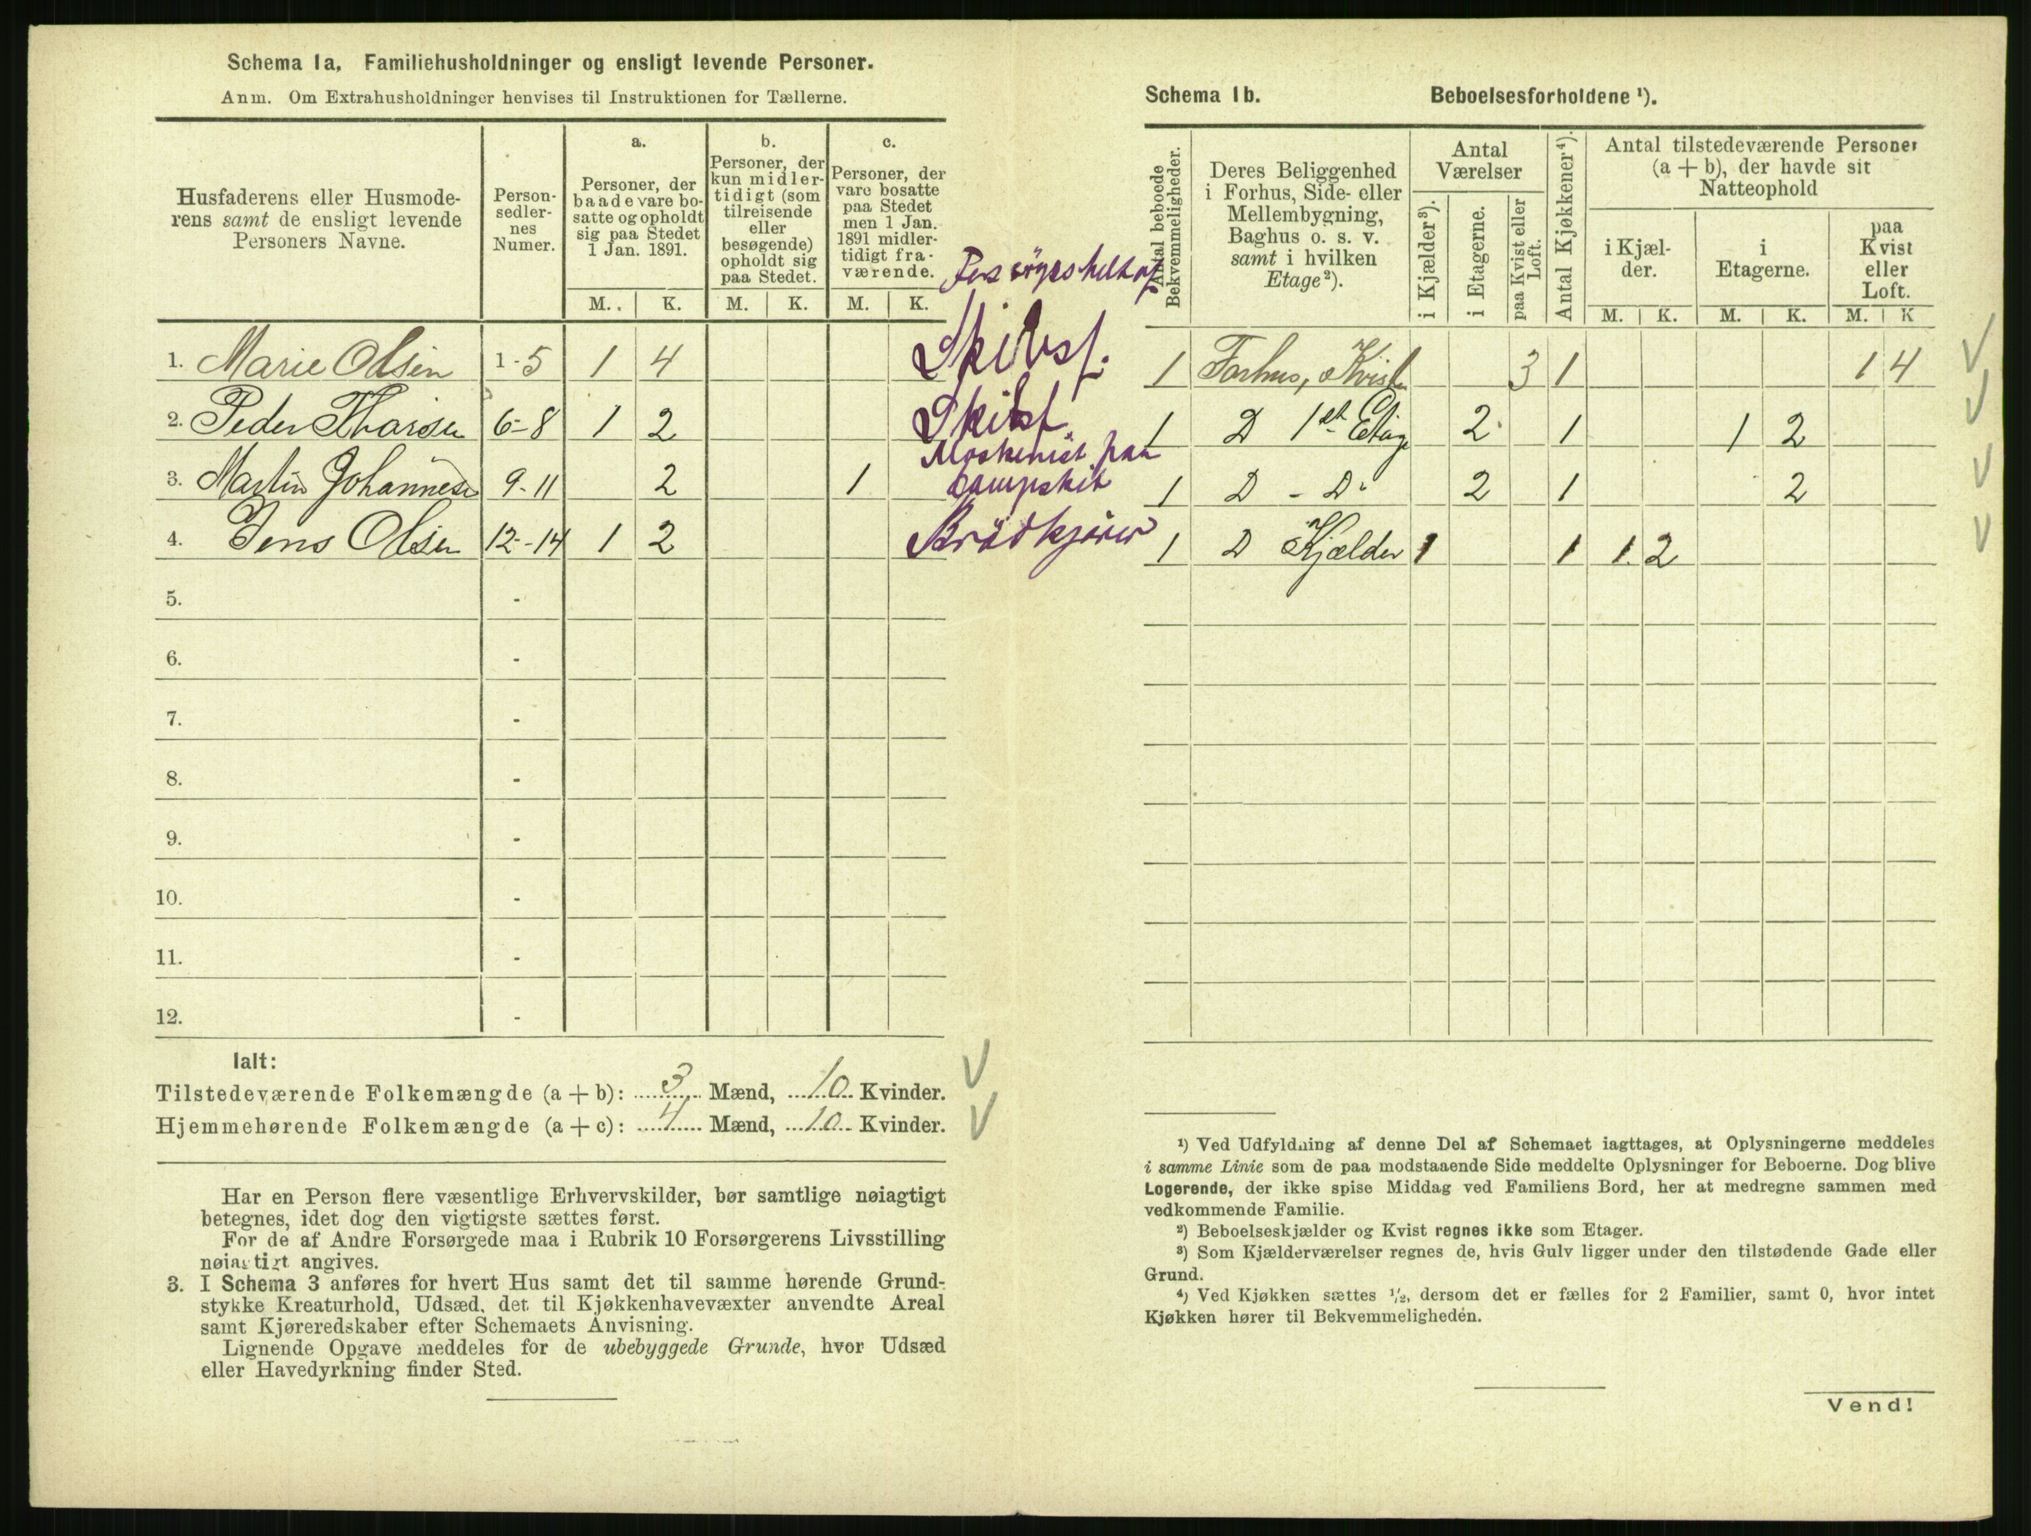 Schema 1a. Familiehusholdninger og ensligt levende Personer.
Anm. Om Extrahusholdninger henvises til Instruktionen for Tællerne.
Husfaderens eller Husmode-
rens samt de ensligt levende
Personers Navne.
Person-
sedler-
nes
Numer.
a.
Personer, der
baade vare bo-
satte og opholdt
sig paa Stedet
1 Jan. 1891.
b.
Personer, der
kun midler-
tidigt (som
tilreisende
eller
besøgende)
opholdt sig
paa Stedet.
c.
Personer, der
vare bosatte
paa Stedet
men 1 Jan.
1891 midler-
tidigt fra-
værende.
M. K. M. K. M. K.
1. Marie Olsen 1-5 1 4 Skibsf.
2. Peder Thorsen 6-8 1 2 Skibsf.
3. Martin Johannesen 9-11 2 1 Maskenist paa
Dampskib
4. Jens Olsen 12-14 1 2 Brödkjörer
5. -
6. -
7. -
8. -
9. -
10. -
11. -
12. -
Ialt:
Tilstedeværende Folkemængde (a + b): 3 Mænd, 10 Kvinder.
Hjemmehørende Folkemængde (a + c): 4 Mænd, 10 Kvinder.
Har en Person flere væsentlige Erhvervskilder, bør samtlige nøiagtigt
betegnes, idet dog den vigtigste sættes først.
For de af Andre Forsørgede maa i Rubrik 10 Forsørgerens Livsstilling
nøiagtigt angives.
3. I Schema 3 anføres for hvert Hus samt det til samme hørende Grund-
stykke Kreaturhold, Udsæd, det til Kjøkkenhavevæxter anvendte Areal
samt Kjøreredskaber efter Schemaets Anvisning.
Lignende Opgave meddeles for de ubebyggede Grunde, hvor Udsæd
eller Havedyrkning finder Sted.
Schema 1b. Beboelsesforholdene ¹).
Antal beboede
Bekvemmeligheder.
Deres Beliggenhed
i Forhus, Side- eller
Mellembygning,
Baghus o. s. v.
samt i hvilken
Etage²).
Antal
Værelser
i Kjælder³).
i Etagerne.
paa Kvist eller
Loft.
Antal Kjøkkener⁴).
Antal tilstedeværende Personer
(a + b), der havde sit
Natteophold
i Kjæl-
der.
i
Etagerne.
paa
Kvist
eller
Loft.
M. K. M. K. M. K
1 Forhus, Kvisten 3 1 1 4
1 D 1st Etage 2 1 1 2
1 D - D 2 1 2
1 D Kjælder 1 1 1 2
¹) Ved Udfyldning af denne Del af Schemaet iagttages, at Oplysningerne meddeles
i samme Linie som de paa modstaaende Side meddelte Oplysninger for Beboerne. Dog blive
Logerende, der ikke spise Middag ved Familiens Bord, her at medregne sammen med
vedkommende Familie.
²) Beboelseskjælder og Kvist regnes ikke som Etager.
³) Som Kjælderværelser regnes de, hvis Gulv ligger under den tilstødende Gade eller
Grund.
⁴) Ved Kjøkken sættes ½, dersom det er fælles for 2 Familier, samt 0, hvor intet
Kjøkken hører til Bekvemmeligheden.
Vend!